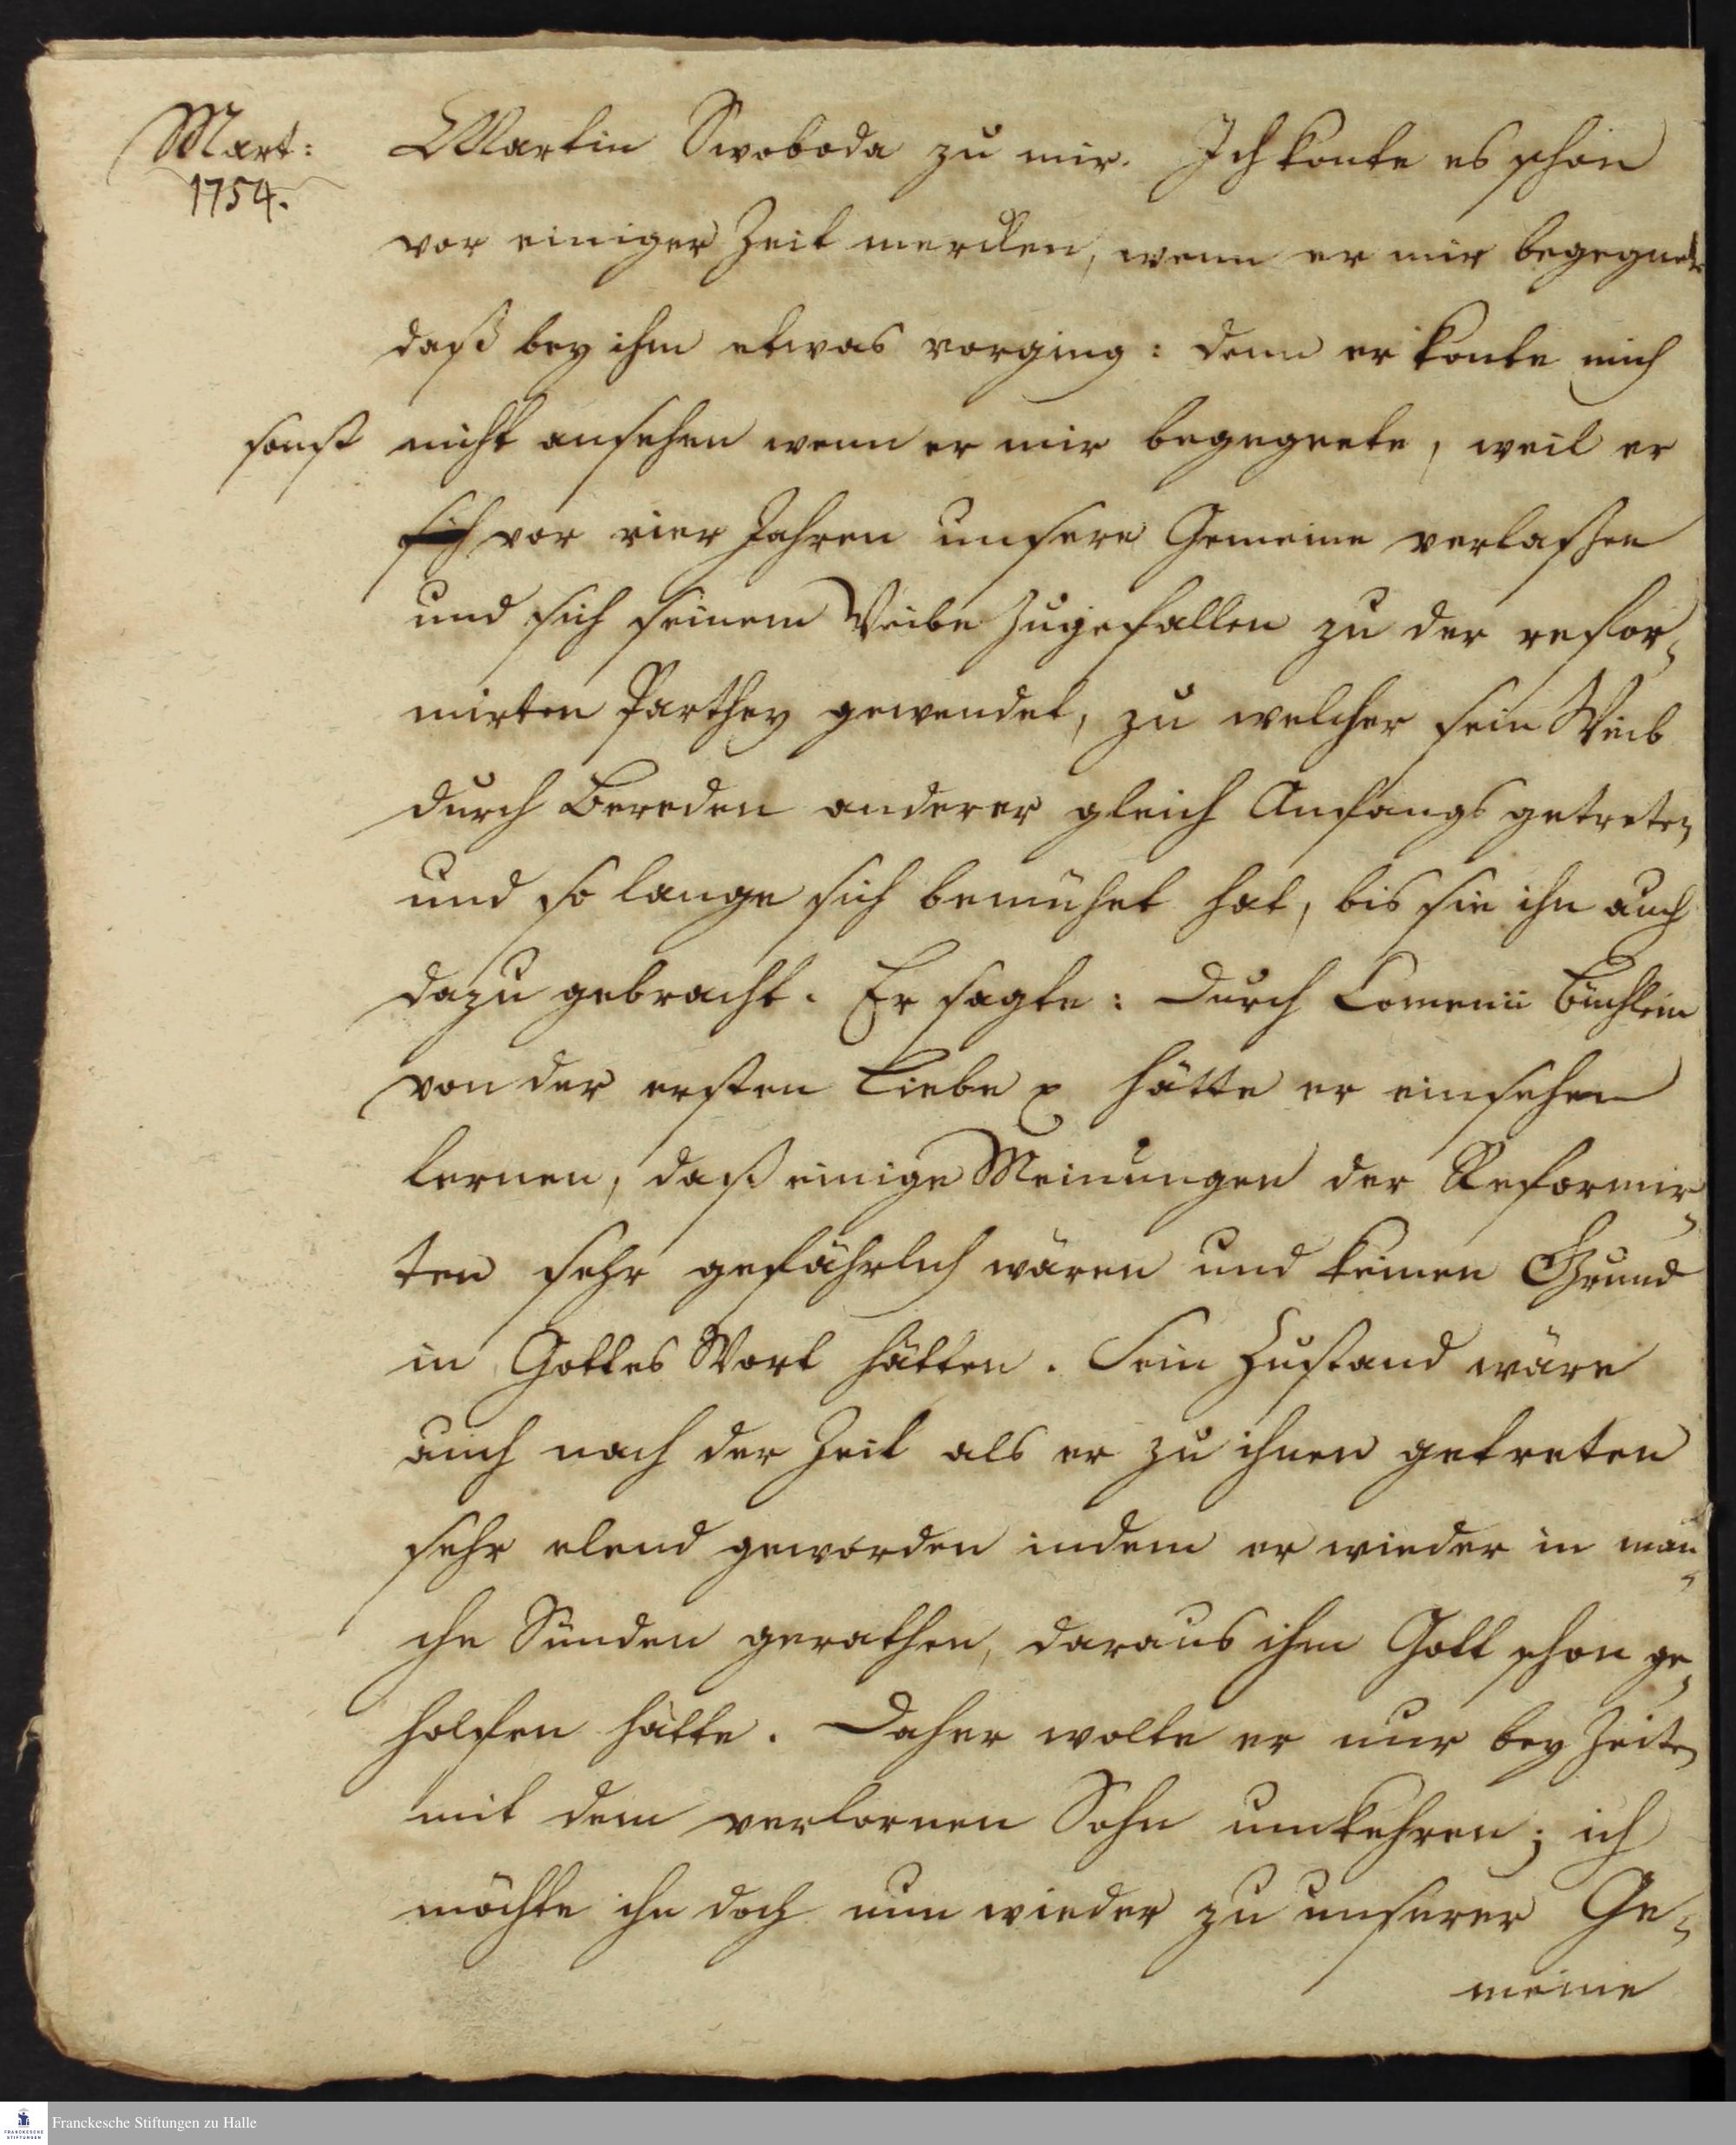 Mart:
1754.
Martin Swoboda zu mir. Ich konte es schon
vor einiger Zeit mercken, wenn er mir begegnete
daß bey ihm etwas vorging: denn er konte mich
sonst nicht ansehen wenn er mir begegnete, weil er
sich vor vier Jahren unsere Gemeine verlaßen
und sich seinem Weibe zugefallen zu der refor-
mirten Parthey gewendet, zu welcher sein Weib
durch Bereden anderer gleich Anfangs getreten
und so lange sich bemühet hat, bis sie ihn auch
dazu gebracht. Er sagte: Durch Comenii Büchlein
von der ersten Liebe hätte er einsehen
lernen, daß einige Meinungen der Reformir-
ten sehr gefährlich wären und keinen Grund
in Gottes Wort hätten. Sein Zustand wäre
auch nach der Zeit als er zu ihnen getreten
sehr elend geworden indem er wieder in man-
che Sünden gerathen, daraus ihm Gott schon ge-
holfen hätte. Daher wolte er nur bey Zeiten
mit dem verlornen Sohn umkehren; ich
möchte ihn doch nun wieder zu unserer Ge-
meine
Franckesche Stiftungen zu Halle
FRANCKESCHE
STIFTUNGEN